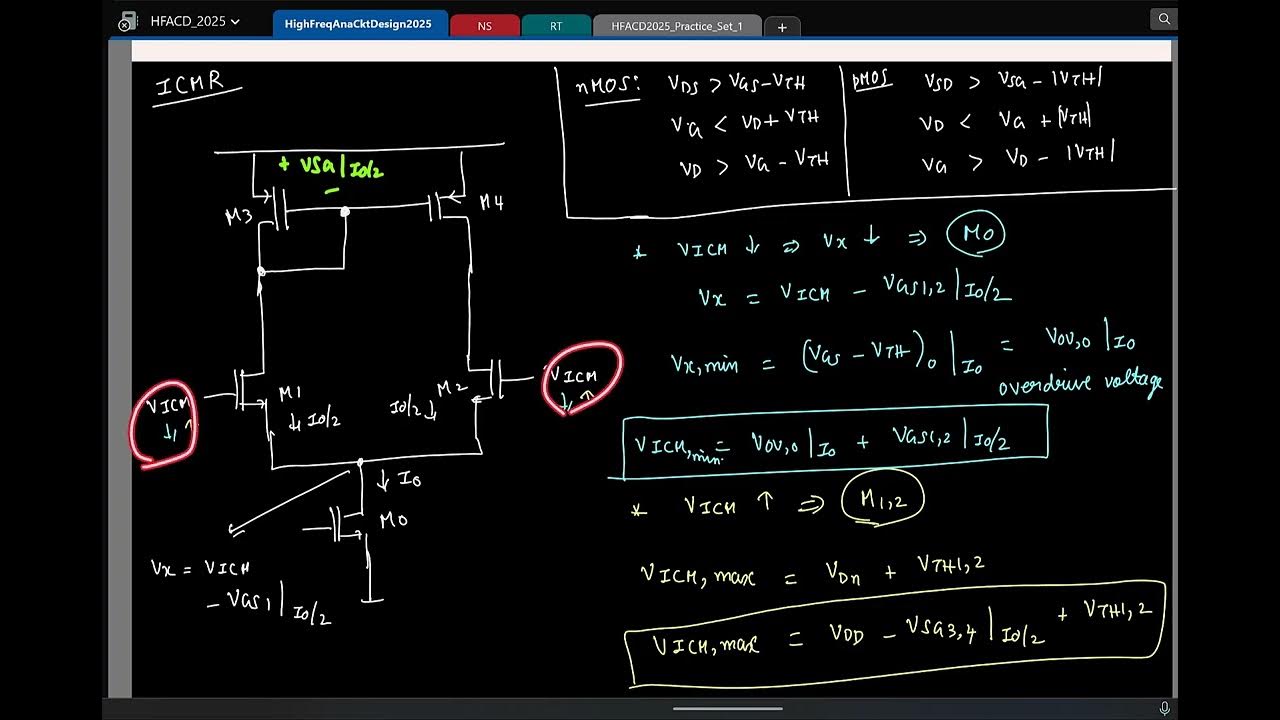 HFACD_2025
HighFreqAnaCktDesign2025
NS
RT
HFACD2025_Practice_Set_1
+
ICMR
+ VSG|Io/2
-
M3
M4
VICM
↓, ↑
M1
↓ Io/2
Io/2 ↓
M2
VICM
↓, ↑
↓ Io
M0
Vx = VICM
- VGS1|Io/2
nMOS: VDS > VGS-VTH
VG < VD + VTH
VD > VG - VTH
pMOS VSD > VSG - |VTH|
VD < VG + |VTH|
VG > VD - |VTH|
* VICM ↓ ⇒ Vx ↓ ⇒ M0
Vx = VICM - VGS1,2|Io/2
Vx,min = (VGS - VTH)0|Io = VOV,0|Io
overdrive voltage
VICM,min = VOV,0|Io + VGS1,2|Io/2
* VICM ↑ ⇒ M1,2
VICM,max = VDn + VTH1,2
VICM,max = VDD - VSG3,4|Io/2 + VTH1,2